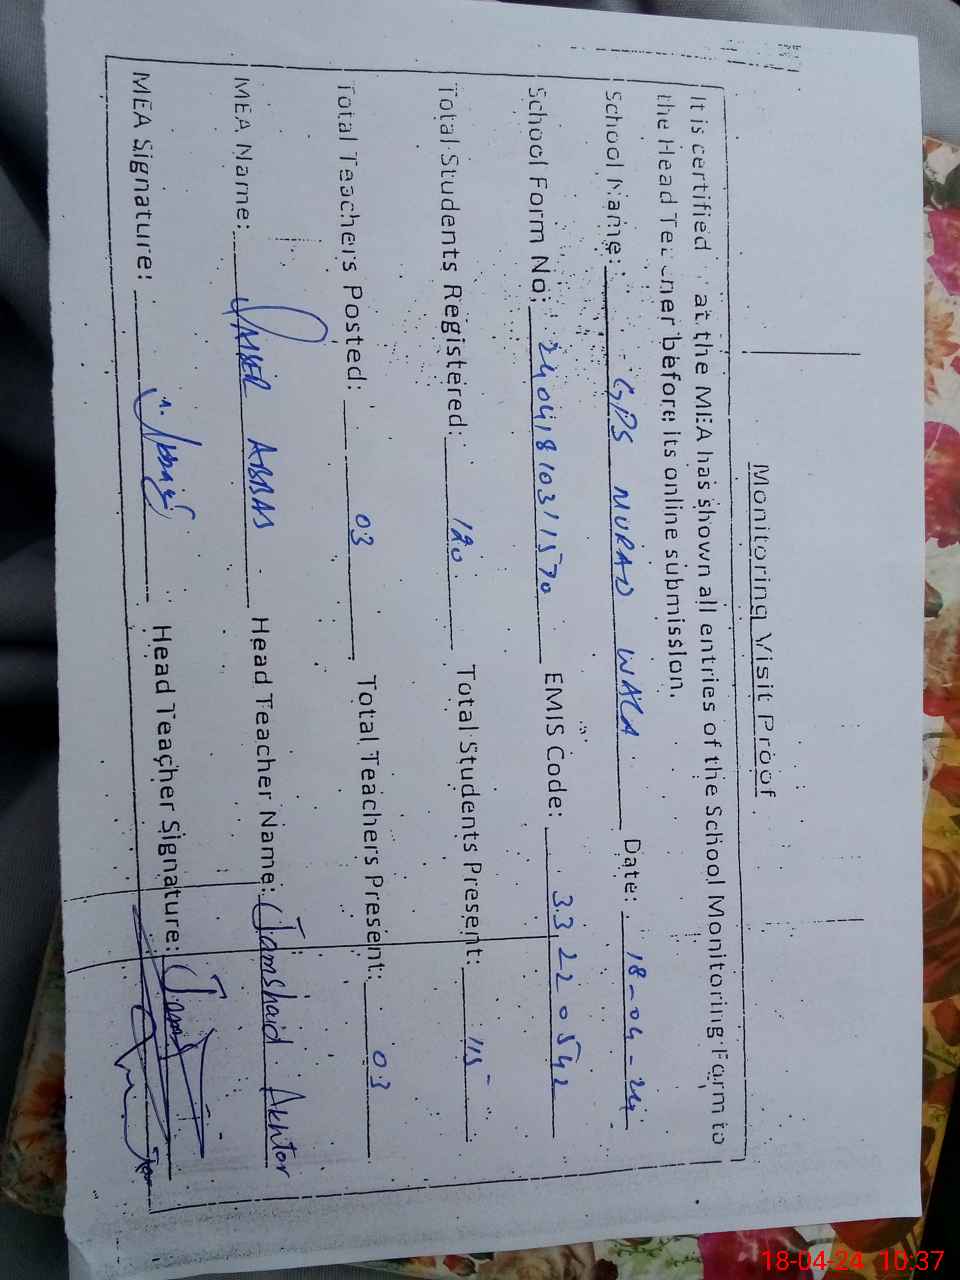 Monitoring Visit Proof
It is certified at the MEA has shown all entries of the School Monitoring Form to
the Head Teacher before its online submission.
School Name: GPS MURAD WALA Date: 18-04-24
School Form No: 24041810311570 EMIS Code: 33220542
Total Students Registered: 120 Total Students Present: 115
Total Teachers Posted: 03 Total Teachers Present: 03
MEA Name: QAISER ABBAS Head Teacher Name: Jamshaid Akhtar
MEA Signature: Head Teacher Signature:
18-04-24 10:37